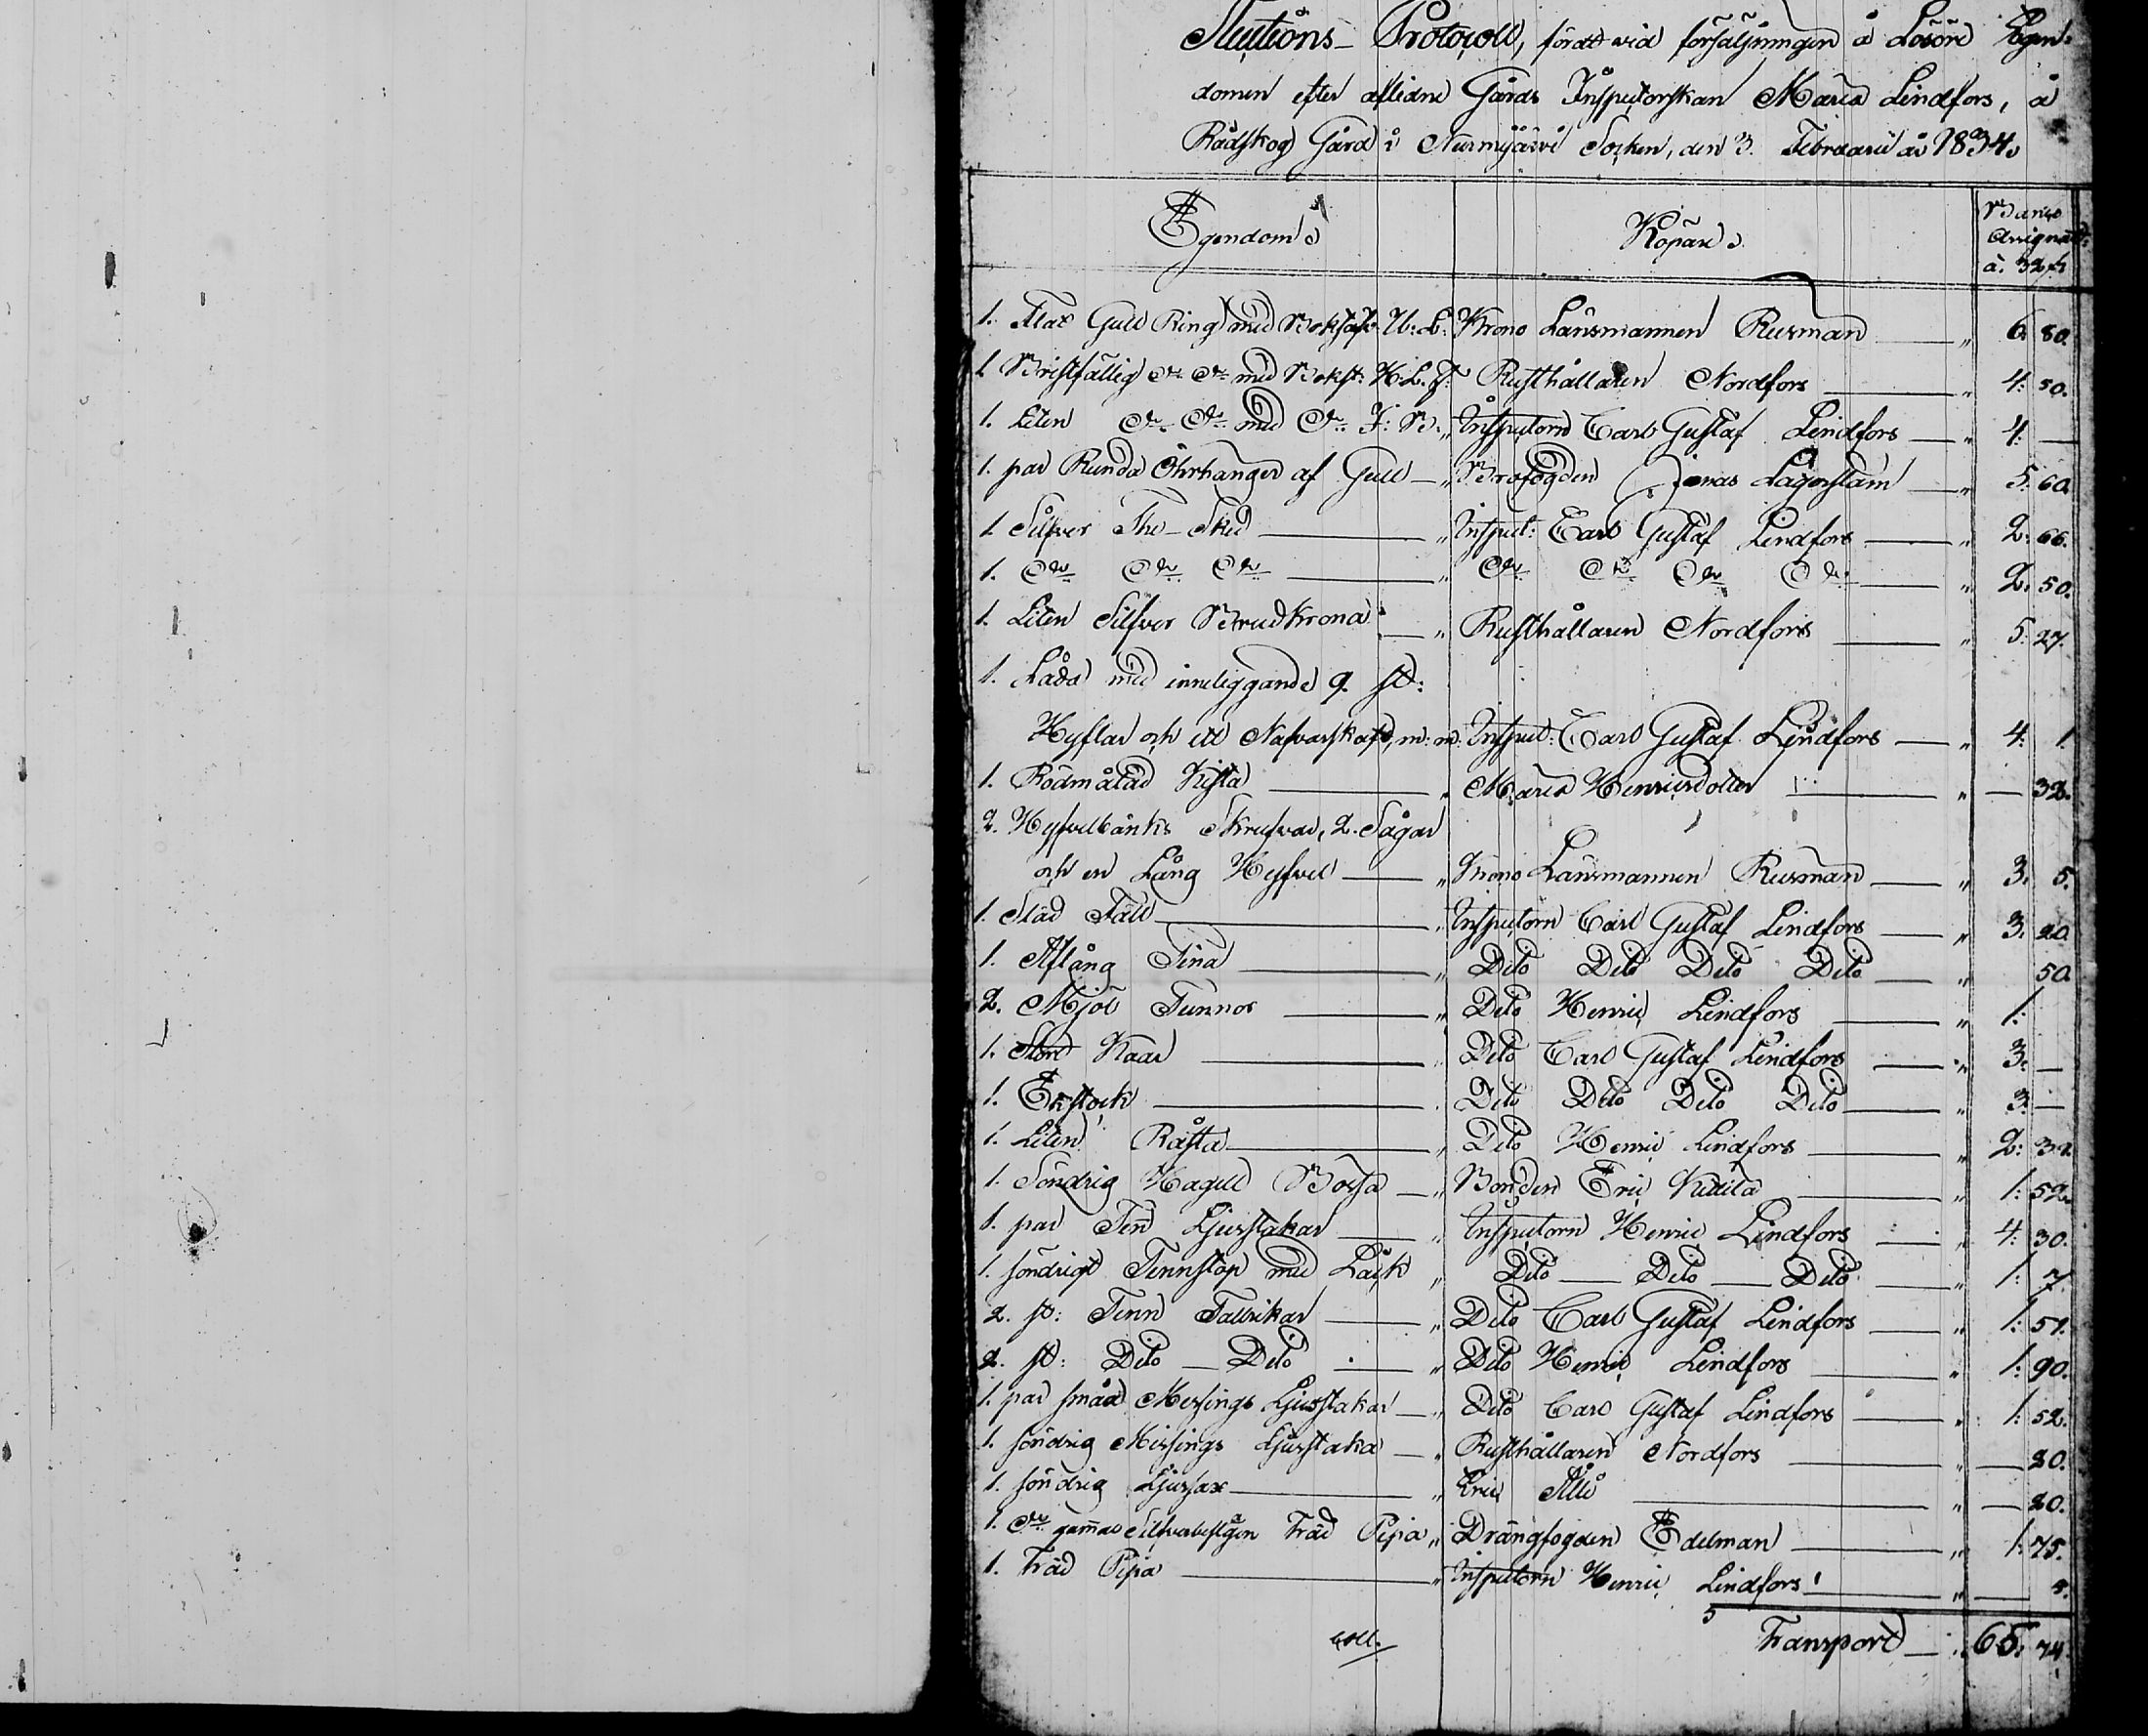 Auctions-Protocoll, fördt vid försäljningen å Lösöre Egen-
domen efter aflidne Gårds Inspectorskan Maria Lindfors, å
Rådskog Gård i Nurmijärvi Socken, den 3. Februarii år 1834.
Egendom. Köpare. Banco Assignat: à 32 s
1. Flat Guld Ring med Bokstäf: U: L: Krono Länsmannen Rusman " 6: 80.
1 Bristfällig Do Do med Bokst: H: L. J: Rusthållaren Nordfors " 4: 50.
1. Liten Do Do med Do J: B: " Inspectorn Carl Gustaf Lindfors " 4: —
1. par Runda Öhrhänger af Gull " Brofogden Jonas Lagerstam " 5: 60.
1 Silfver The-Sked " Inspect: Carl Gustaf Lindfors " 2: 66.
1. Do Do Do " Do Do Do Do " 2. 50.
1. Liten Silfver Brudkrona " Rusthållaren Nordfors " 5: 27.
1. Låda med inneliggande 9. st:
Hyflar och ett Nafvarskaft, m: m: Inspect: Carl Gustaf Lindfors " 4: 1.
1. Rödmålad Kista " Maria Henricsdotter " — 32.
2. Hyfvelbänks Skrufvar, 2. Sågar
och en Lång Hyfvel " Krono Länsmannen Rusman " 3. 5.
1. Städ Inspectorn Carl Gustaf Lindfors " 3. 20.
1. Aflång Tina " Dito Dito Dito Dito " 50.
2. Mjöl Tunnor " Dito Henric Lindfors " 1: —
1. Stort Kaar " Dito Carl Gustaf Lindfors " 3: —
1. Ekstock Dito Dito Dito Dito " 3: —
1. Liten " Dito Henric Lindfors " 2: 32.
1. Söndrig Hagell Bössa " Bonden Eric " 1: 52.
1. par Ten Ljusstakar " Inspectorn Henric Lindfors " 4: 30.
1. söndrigt Tennstop med Låck " Dito — Dito — Dito " 1: 7.
2. st: Tenn Tallrikar " Dito Carl Gustaf Lindfors " 1: 51.
2. st: Dito — Dito " Dito Henric Lindfors " 1: 90.
1. par små Messings Ljusstakar " Dito Carl Gustaf Lindfors " 1: 52.
1. söndrig Messings Ljusstaka " Rusthållaren Nordfors " — 20.
1. söndrig Ljussax " Eric " — 20.
1. Do gammal Silfverbeslagen Träd Pipa " Drängfogden Edelman " 1: 75.
1. Träd Pipa " Inspectorn Henric Lindfors " —
Transport 65: 74.
coll.